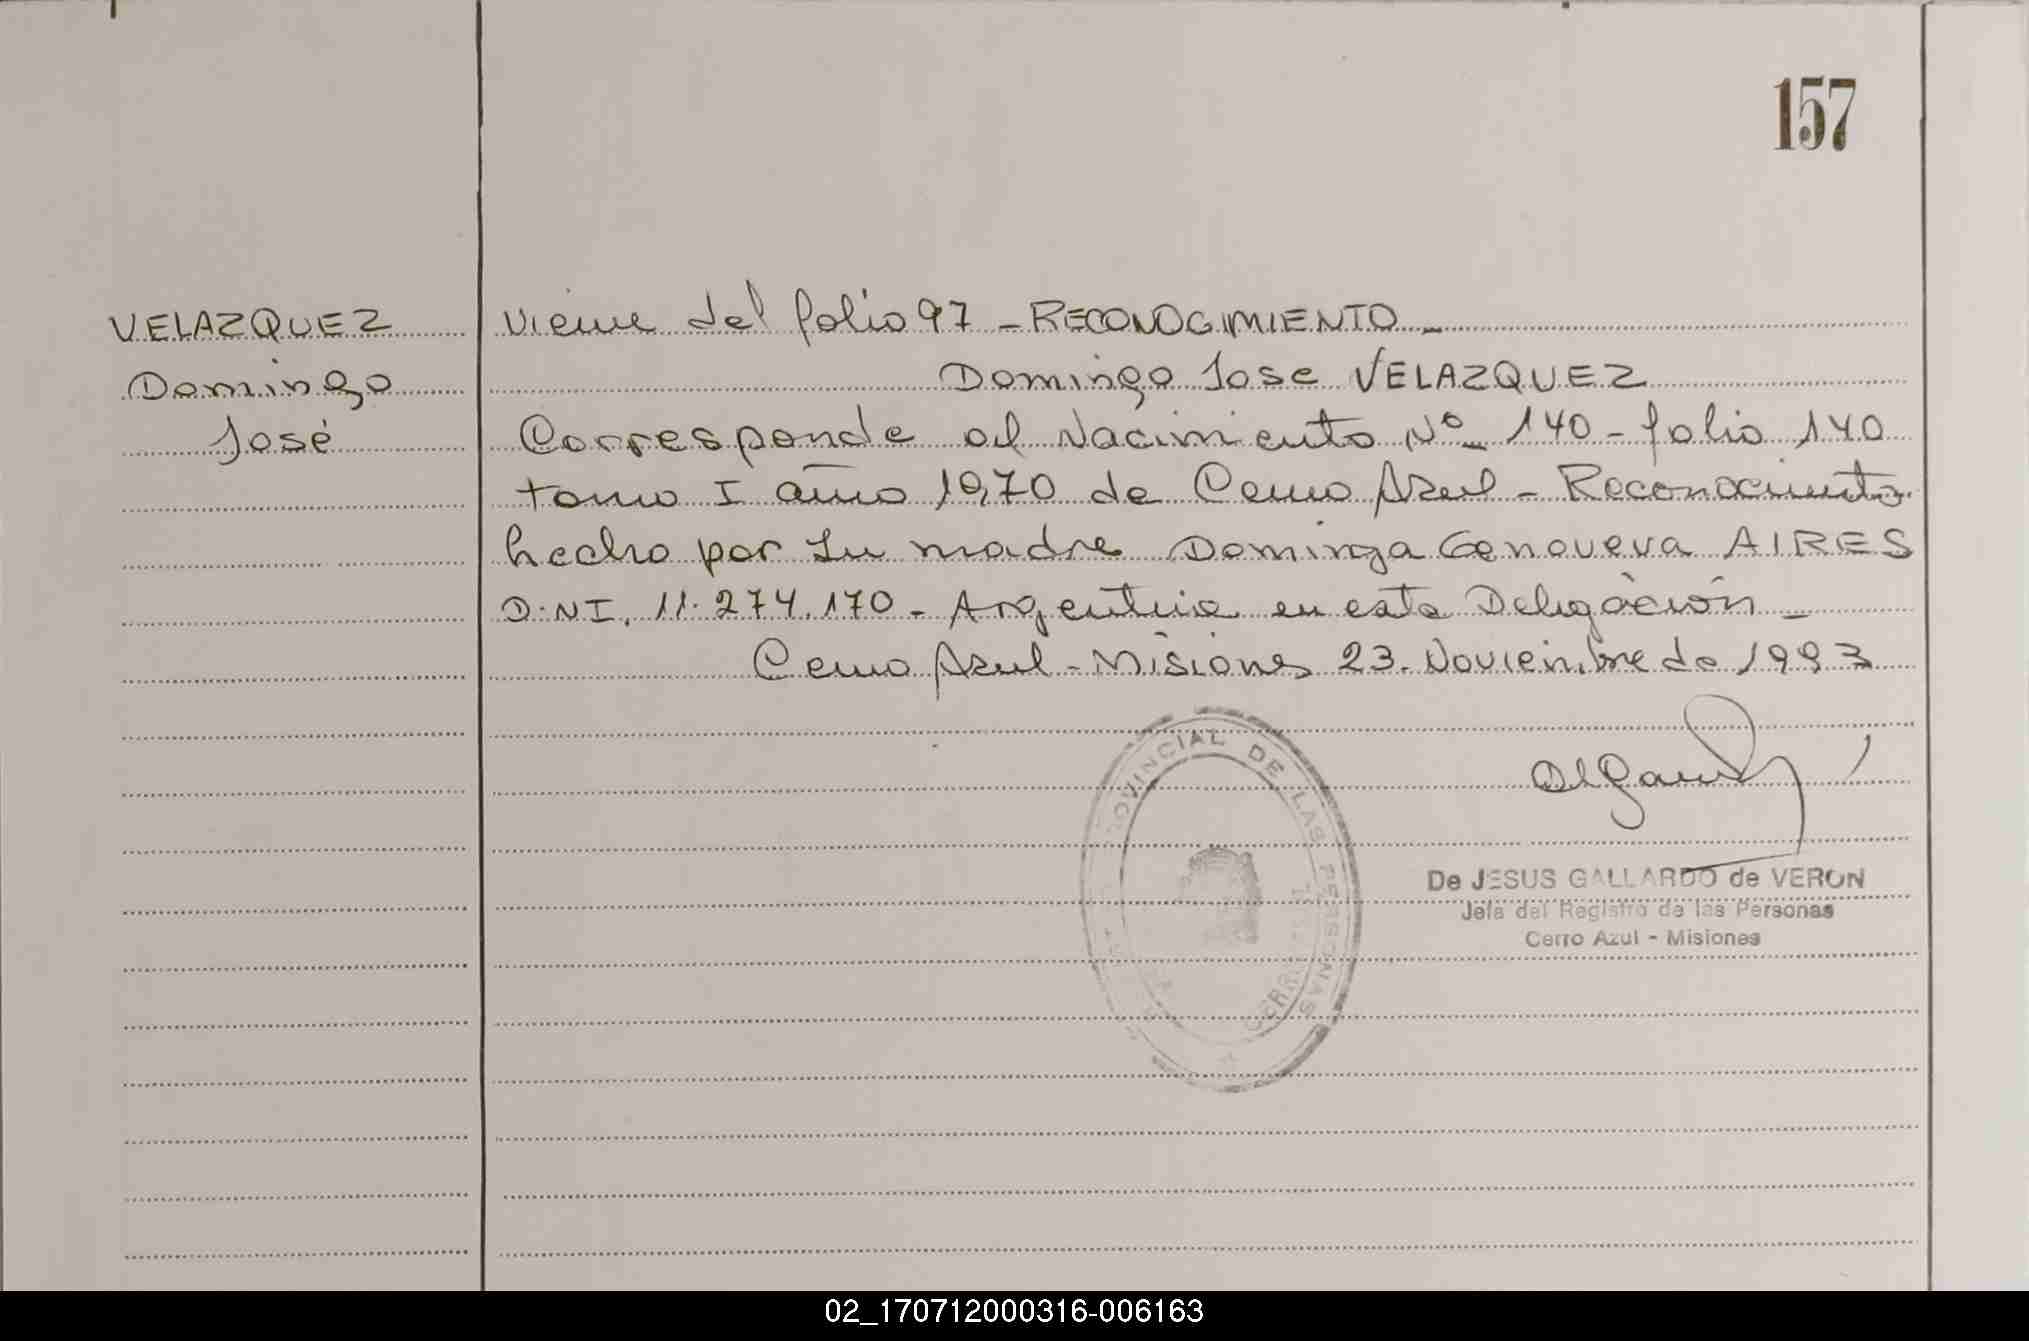 157
VELAZQUEZ
Domingo
José
Viene del folio 97 - RECONOCIMIENTO -
Domingo Jose VELAZQUEZ
Corresponde al Nacimiento Nº 140 - folio 140
tomo I año 1970 de Cerro Azul - Reconocimiento
hecho por su madre Dominga Genoveva AIRES
D.N.I. 11.274.170 - Argentina en esta Delegación -
Cerro Azul - Misiones 23 Noviembre de 1993
PROVINCIAL DE LAS PERSONAS
De JESUS GALLARDO de VERON
Jefe del Registro de las Personas
Cerro Azul - Misiones
02_170712000316-006163